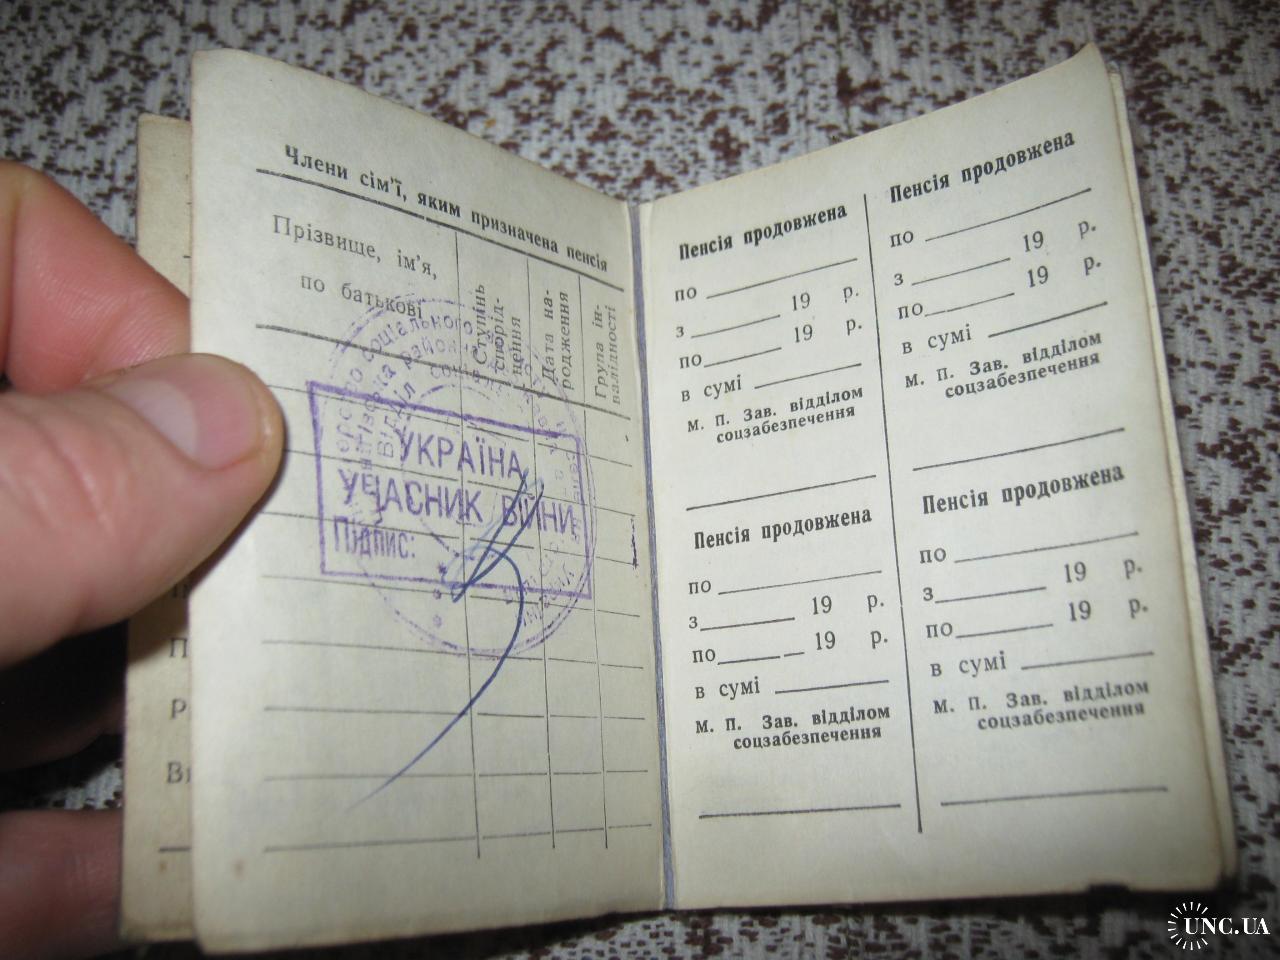 Члени сім'ї, яким призначена пенсія
Прізвище, ім'я,
по батькові
Ступінь
спорід-
нення
Дата на-
родження
Група ін-
валідності
УКРАЇНА
УЧАСНИК ВІЙНИ
Підпис:
Пенсія продовжена
по
з 19 р.
по 19 р.
в сумі
м. п. Зав. відділом
соцзабезпечення
Пенсія продовжена
по
з 19 р.
по 19 р.
в сумі
м. п. Зав. відділом
соцзабезпечення
Пенсія продовжена
по
з 19 р.
по 19 р.
в сумі
м. п. Зав. відділом
соцзабезпечення
Пенсія продовжена
по
з 19 р.
по 19 р.
в сумі
м. п. Зав. відділом
соцзабезпечення
UNC.UA